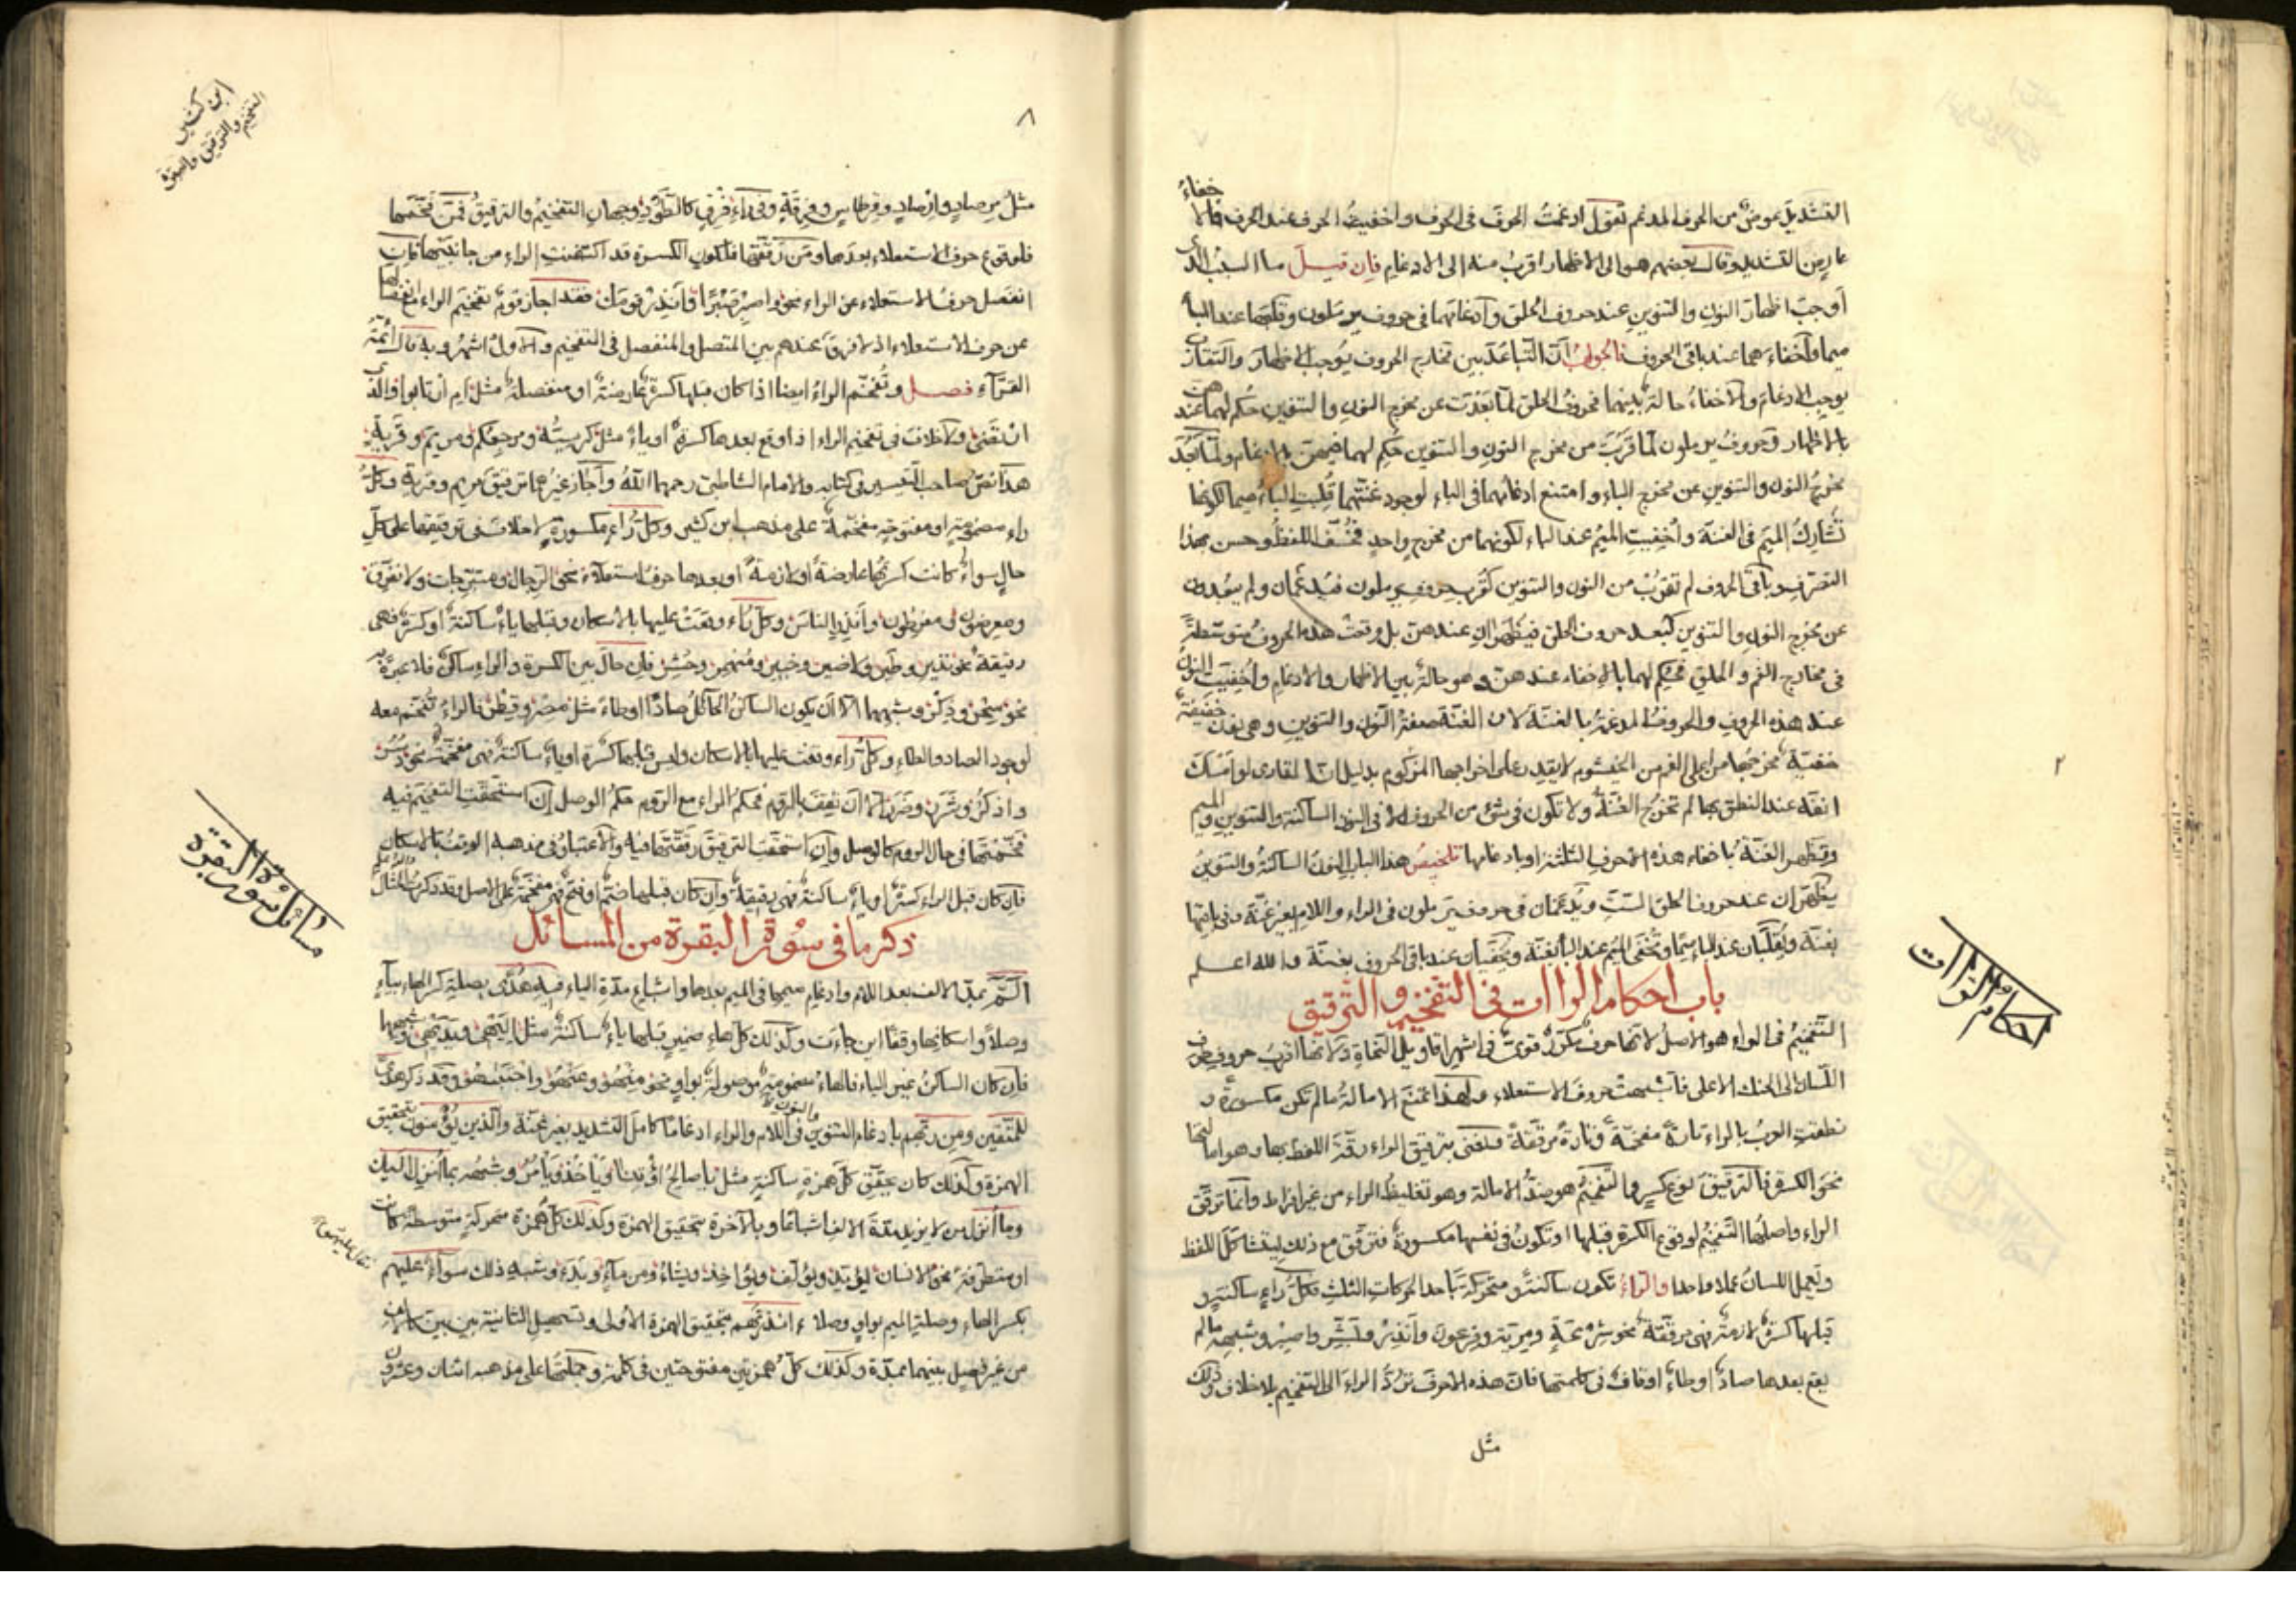 التشديد عوض من الحرف المدغم تقول ادغمت الحرف فى الحرف واخفيت الحرف عند الحرف فالاخفاء
عار من التشديد وقال بعضهم هو الى الاظهار اقرب منه الى الادغام فان قيل ما السبب الذى
أوجب اظهار النون والتنوين عند حروف الحلق وادغامهما فى حروف يرملون وقلبهما عند الباء
ميما واخفاءهما عند باقى الحروف فالجواب أن التباعد بين مخارج الحروف يوجب الاظهار والتقارب
يوجب الادغام والاخفاء حالة بينهما فحروف الحلق لما بعدت عن مخرج النون والتنوين حكم لهما عندهن
بالاظهار وحروف يرملون لما قربت من مخرج النون والتنوين حكم لهما فيهن بالادغام ولما بعد
مخرج النون والتنوين عن مخرج الباء وامتنع ادغامهما فى الباء لوجود غنتهما قلبت الباء ميما لكونها
تشارك الميم فى الغنة وأخفيت الميم عند الباء لكونهما من مخرج واحد فخف اللفظ وحسن بهذا
التصرف وباقى الحروف لم تقرب من النون والتنوين كقرب حروف يرملون فيدغمان ولم يبعدن
عن مخرج النون والتنوين كبعد حروف الحلق فيظهران عندهن بل وقعت هذه الحروف متوسطة
فى مخارج الفم والحلق فحكم لهما بالاخفاء عندهن وهو حالة بين الاظهار والادغام واخفيت النون
عند هذه الحروف والحروف المدغمة بالغنة لان الغنة صفة النون والتنوين وهى نون خفيفة
خفية مخرجها من اعلى الفم من الخيشوم لايقدر على اخراجها المزكوم بدليل ان القارى لو امسك
انفه عند النطق بها لم تخرج الغنة ولا تكون فى شئ من الحروف الا فى النون الساكنة والتنوين والميم
وتظهر الغنة باخفاء هذه الاحرف الثلثة او بادغامها تلخيص هذا الباب النون الساكنة والتنوين
يظهران عند حروف الحلق الستة ويدغمان فى حروف يرملون فى الراء واللام بغير غنة وفى باقيها
بغنة ويقلبان عند الباء ميما وتخفى الميم عند الباء بغنة ويخفيان عند باقى الحروف بغنة والله اعلم
باب احكام الراات فى التفخيم والترقيق
التفخيم فى الراء هو الاصل لانها حرف تكرر قوى فى اشهر اقاويل النحاة ولانها اقرب حروف طرف
اللسان الى الحنك الاعلى فاشبهت حروف الاستعلاء ولهذا تمنع الامالة مالم تكن مكسورة و
نطقت العرب بالراء تارة مفخمة وتارة مرققة فنعنى بترقيق الراء رقة اللفظ بها وهو امالتها
نحو الكسرة فالترقيق نوع كسر والتفخيم هو ضد الامالة وهو تغليظ الراء من غير افراط وانما ترقق
الراء واصلها التفخيم لوقوع الكسرة قبلها او تكون فى نفسها مكسورة فترقق مع ذلك ليتشاكل اللفظ
ويعمل اللسان عملا واحدا والراء تكون ساكنة ومتحركة باحد الحركات الثلث فكل راء ساكنة و
قبلها كسرة لازمة فهى مرققة نحو شرعة ومرية وفرعون وأنذر وبشر واصبر وشبهه مالم
يقع بعدها صاد او طاء او قاف فى كلمتها فان هذه الاحرف ترد الراء الى التفخيم بلا خلاف وذلك
مثل
احكام الراات
٢
٨
ابن كثير
التفخيم والترقيق
مثل مرصاد وارصاد وقرطاس وفرقة وفى راء فرق كالطود وجهان التفخيم والترقيق فمن فخمها
فلوقوع حرف الاستعلاء بعدها ومن رققها فلكون الكسرة قد اكتنفت الراء من جانبيها فان
انفصل حرف الاستعلاء عن الراء نحو واصبر صبرا وأنذر قومك فقد اجاز قوم تفخيم الراء مع انفصالها
عن حرف الاستعلاء اذ لا فرق عندهم بين المتصل والمنفصل فى التفخيم والاول اشهر وبه قال ائمة
القراء فصل وتفخم الراء ايضا اذا كان قبلها كسرة عارضة او منفصلة مثل ام ارتابوا والذى
ارتضى ولا خلاف فى تفخيم الراء اذا وقع بعدها كسرة او ياء مثل كرسيه ومرجعكم ومريم وقرية
هذا نص صاحب التيسير فى كتابه والامام الشاطبى رحمهما الله وأجاز غيرهما ترقيق مريم وقرية وكل
راء مضمومة او مفتوحة مفخمة على مذهب ابن كثير وكل راء مكسورة لا خلاف فى ترقيقها على كل
حال سواء كانت كسرتها عارضة أو لازمة او بعدها حرف استعلاء نحو الرجال ومستخرجات ولا نفرق
ومعرضون وأنذر الناس وكل راء وقعت عليها بالاسكان وقبلها ياء ساكنة او كسرة فهى
رقيقة نحو نذير وطير ولا ضير وخبير ومنهمر وحشر فان حال بين الكسرة والراء ساكن فلا عبرة به
نحو سحر وذكر وشبههما الا ان يكون الساكن الحائل صادا او طاء مثل مصر وقطر فالراء تفخم معه
لوجود الصاد والطاء وكل راء وقفت عليها بالاسكان وليس قبلها كسرة او ياء ساكنة فهى مفخمة نحو دسر
واذكر وشرر الا أن تقف بالروم فحكم الراء مع الروم حكم الوصل إن استحقت التفخيم فيه
فخمتها فى حال الروم كالوصل وان استحقت الترقيق رققتها فيه والاعتبار فى مذهبه الوقف بالاسكان
فان كان قبل الراء كسرة او ياء ساكنة فهى رقيقة وان كان قبلها ضم او فتح فهى مفخمة على الاصل وقد ذكرت المثال
ذكر ما فى سورة البقرة من المسائل
الم بمد الالف بعد اللام وادغام ميمها فى الميم بعدها واشباع مدة الياء فيه هدى بصلة كسر الهاء بياء
وصلا واسكانها وقفا اين جاءت وكذلك كل هاء ضمير قبلها ياء ساكنة مثل اليهى وبديهى وشبهها
فان كان الساكن غير الياء فالهاء مضمومة موصولة بواو نحو منهمو وعنهمو واجتبهمو وقد ذكر هدى
للمتقين ومن ربهم بادغام التنوين والنون فى اللام والراء ادغاما كامل التشديد بغير غنة والذين يؤمنون بتحقيق
الهمزة وكذلك كان يحقق كل همزة ساكنة مثل يا صالح ائتنا ويأخذ ويأمر وشبهه بما أنزل اليك
وما أنزل من لا يزيل مدة الالف اشباعا وبالآخرة بتحقيق الهمزة وكذلك كل همزة متحركة متوسطة كانت
او متطرفة نحو الانسان ليؤيد ويؤلف ويؤاخذ ويشاء ومن ماء وبدء وشبه ذلك سواء عليهم
بكسر الهاء وصلة الميم بواو وصلا ءانذرتهم بتحقيق الهمزة الاولى وتسهيل الثانية بين بين
من غير فصل بينهما بمدة وكذلك كل همزتين مفتوحتين فى كلمة وجملتها على مذهبه اثنان وعشرون
مسائل سورة البقرة